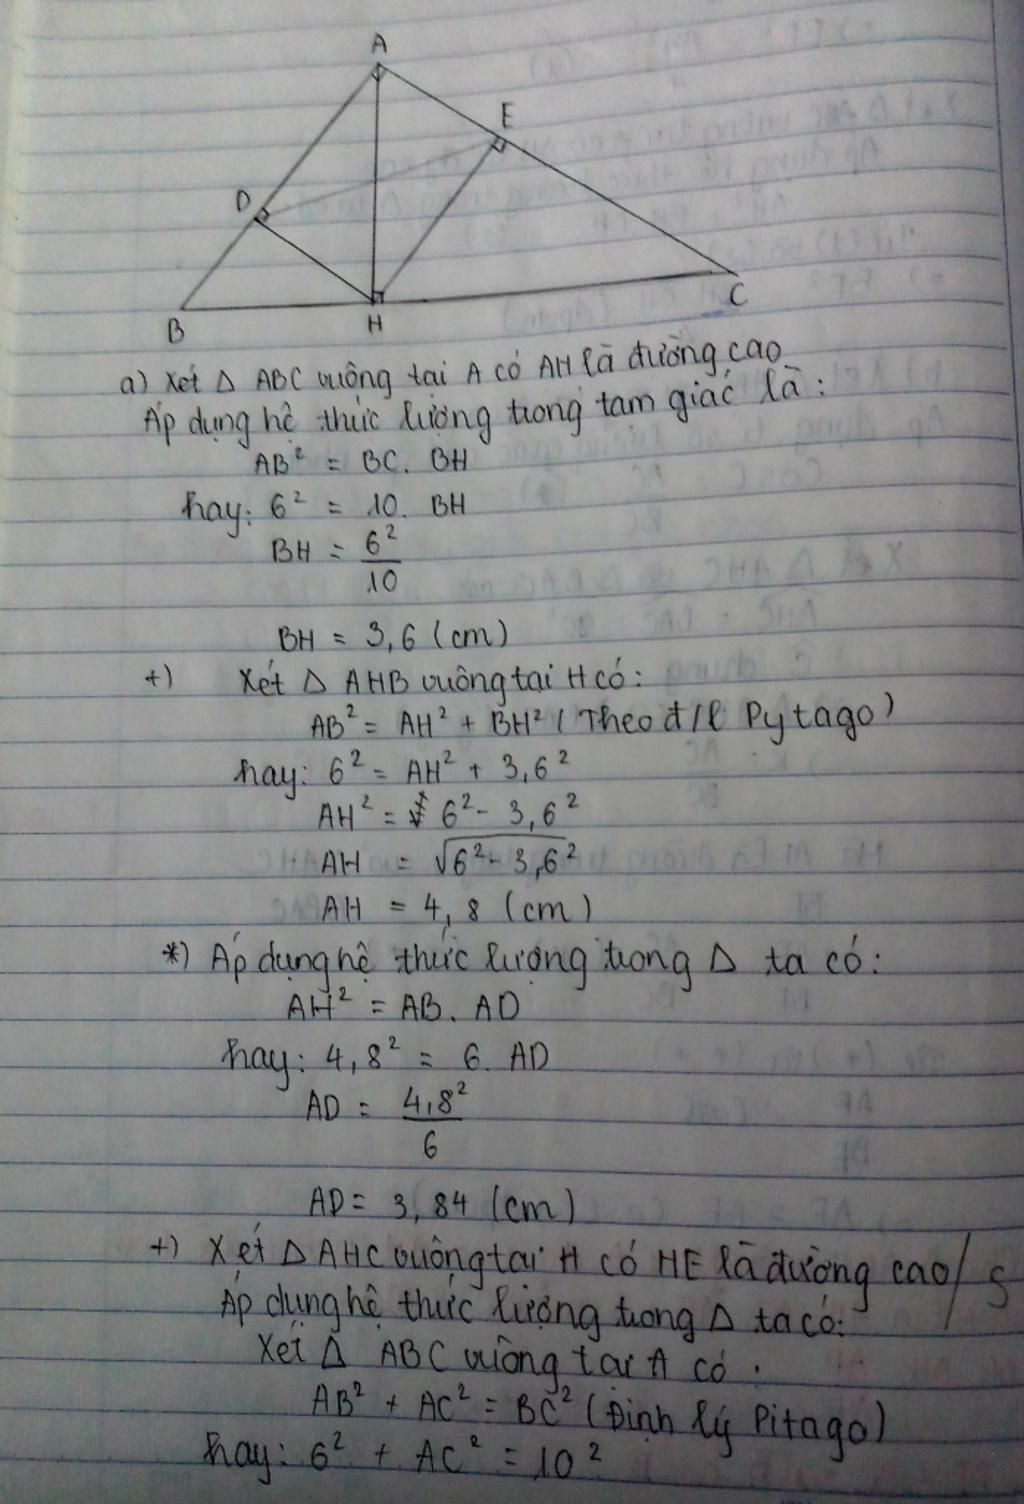 A
E
D
B
H
C
a) Xét Δ ABC vuông tại A có AH là đường cao
Áp dụng hệ thức lượng trong tam giác là:
AB² = BC. BH
hay: 6² = 10. BH
BH = 6²/10
BH = 3,6 (cm)
+) Xét Δ AHB vuông tại H có:
AB² = AH² + BH² (Theo đ/l Pytago)
hay: 6² = AH² + 3,6²
AH² = 6² - 3,6²
AH = √6² - 3,6²
AH = 4,8 (cm)
*) Áp dụng hệ thức lượng trong Δ ta có:
AH² = AB. AD
hay: 4,8² = 6. AD
AD = 4,8²/6
AD = 3,84 (cm)
+) Xét Δ AHC vuông tại H có HE là đường cao/ S
Áp dụng hệ thức lượng trong Δ ta có:
Xét Δ ABC vuông tại A có.
AB² + AC² = BC² (Định lý Pitago)
hay: 6² + AC² = 10²